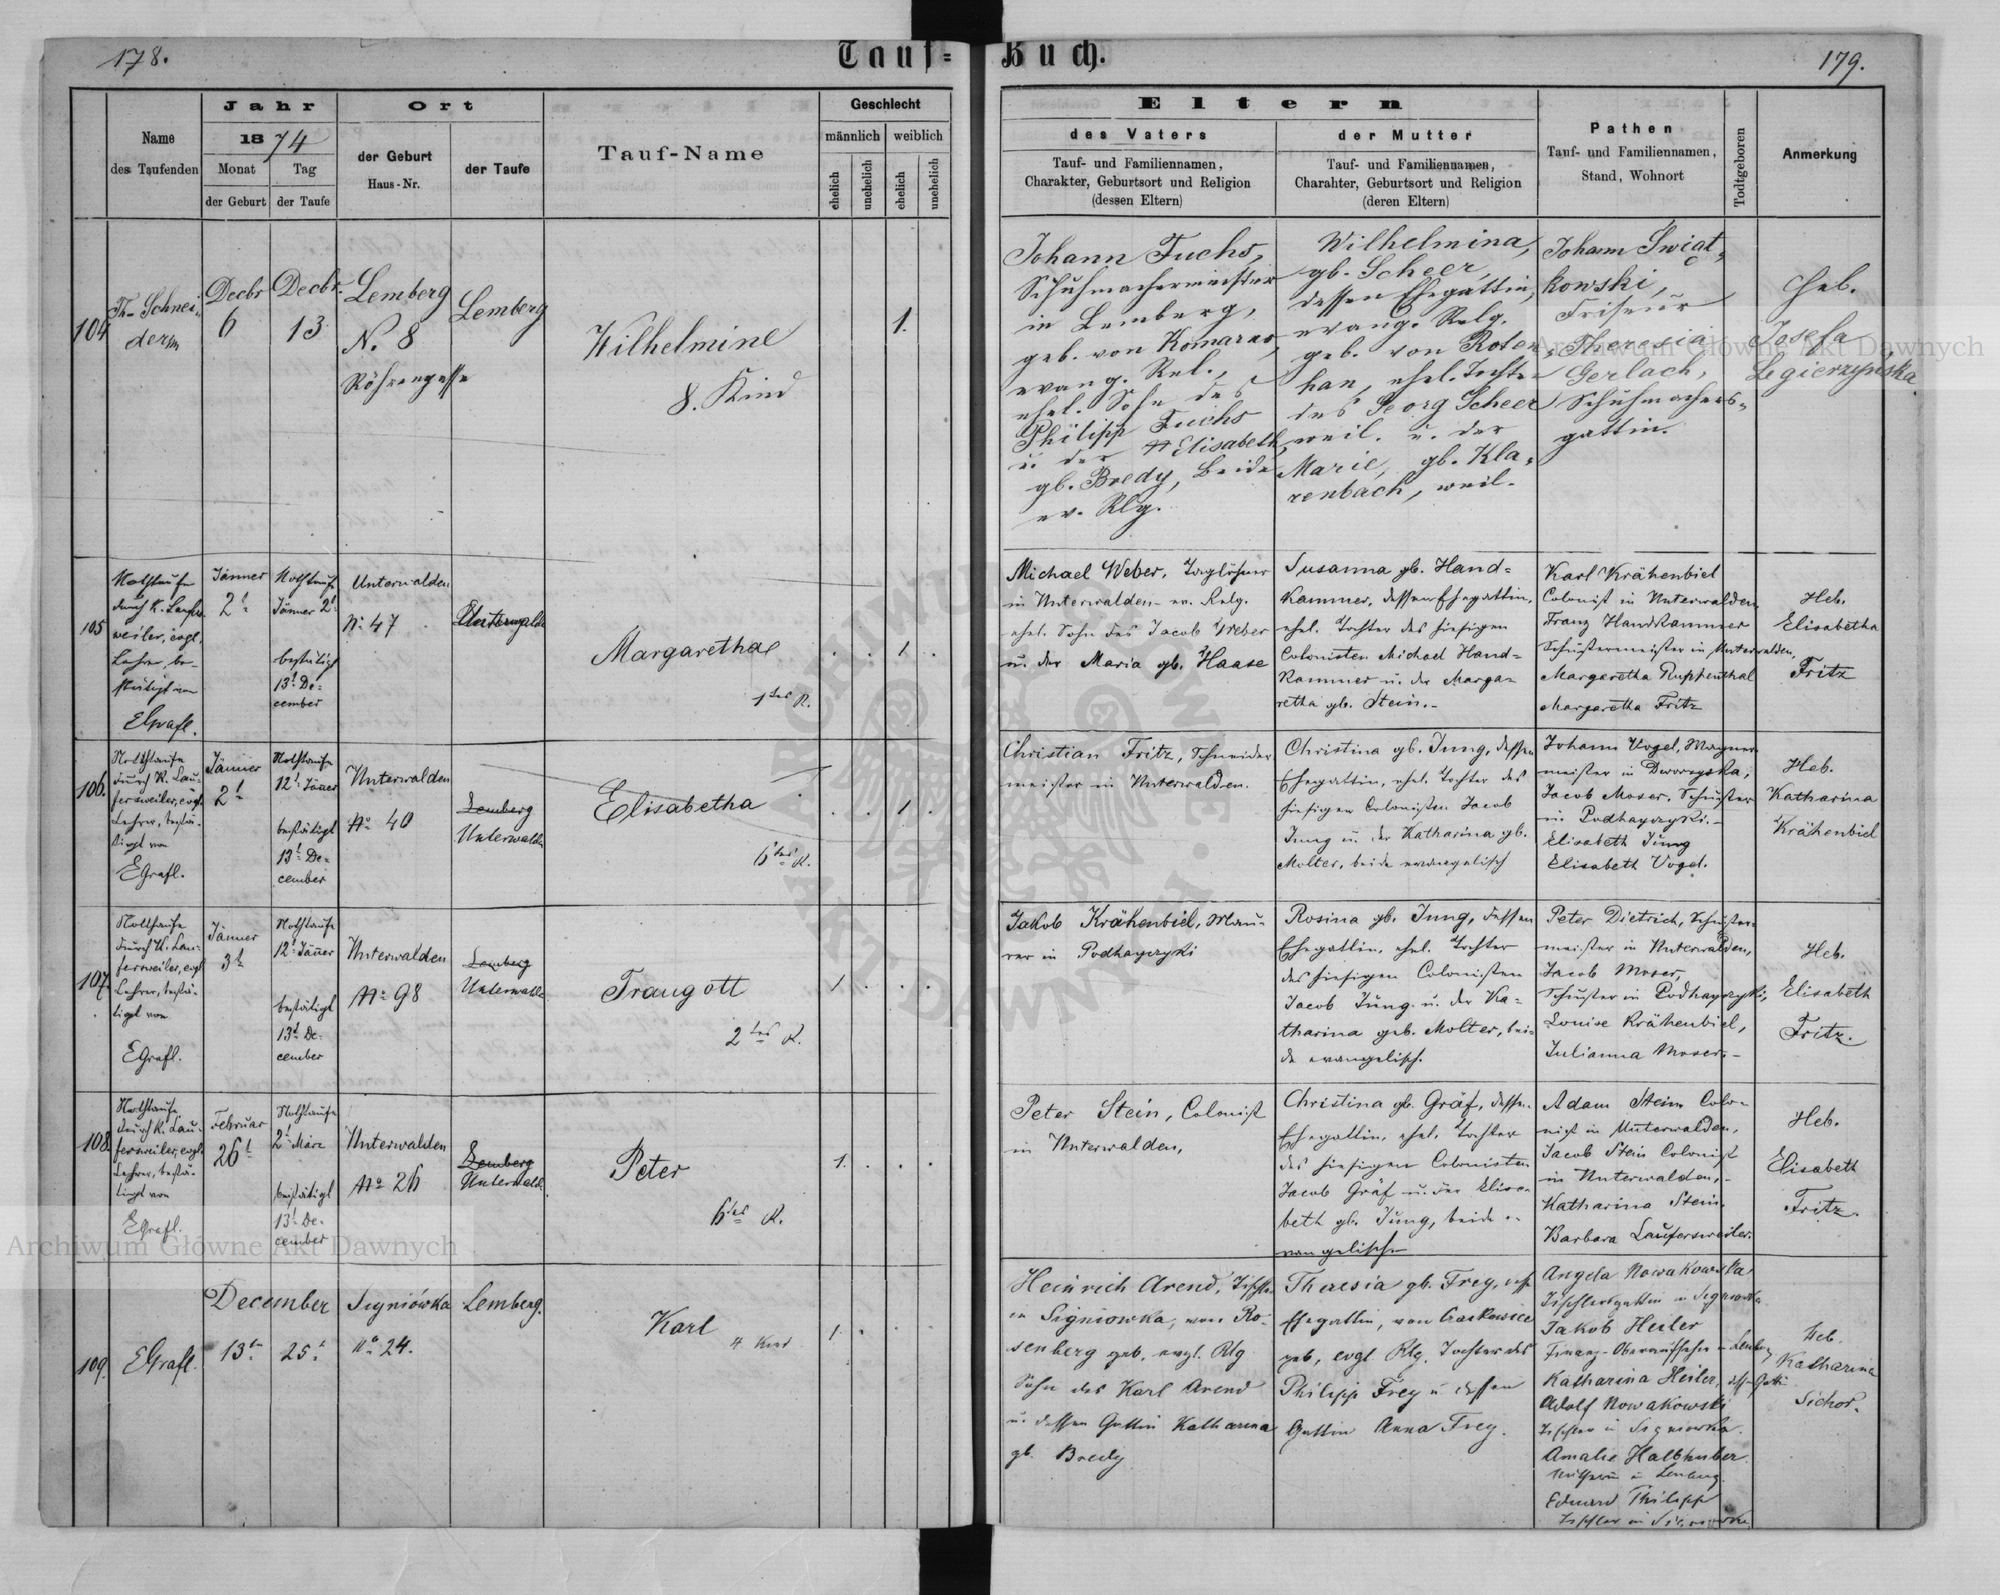 178.
Tauf=Buch.
179.
Name
des Taufenden
Jahr
1874
Monat
Tag
der Geburt
der Taufe
Ort
der Geburt
Haus-Nr.
der Taufe
Tauf-Name
Geschlecht
männlich
weiblich
ehelich
unehelich
ehelich
unehelich
Eltern
des Vaters
Tauf- und Familiennamen,
Charakter, Geburtsort und Religion
(dessen Eltern)
der Mutter
Tauf- und Familiennamen,
Charakter, Geburtsort und Religion
(deren Eltern)
Pathen
Tauf- und Familiennamen,
Stand, Wohnort
Todtgeboren
Anmerkung
104
Th. Schnei-
derm
Decbr
6
Decbr.
13
Lemberg
N. 8
Röhrengasse
Lemberg
Wilhelmine
8. Kind
1.
Johann Fuchs,
Schuhmachermeister
in Lemberg,
geb. von Komarno,
evang. Rel.,
ehel. Sohn des
Philipp Fuchs
u. der Elisabeth
gb. Bredy, beide
ev. Rlg.
Wilhelmina,
gb. Scheer,
dessen Ehegattin,
evang. Relg.
geb. von Roten-
han, ehel. Tochter
des Georg Scheer
weil. u. der
Marie, gb. Kla-
renbach, weil.
Johann Swiąt-
kowski,
Friseur
Theresia
Gerlach,
Schuhmachers-
gattin.
Heb.
Josefa
Legierzynska
105
Nothtaufe
durch K. Laufers-
weiler, evgl.
Lehrer, be-
stätigt von
EGrafl.
Jänner
2t
Nothtaufe
Jänner 2t
bestätigt
13t De-
cember
Unterwalden
No 47
Unterwalde
Margaretha
1tes K.
. . 1 .
Michael Weber, Taglöhner
in Unterwalden ev. Relg.
ehel. Sohn des Jacob Weber
u. der Maria gb. Haase
Susanna gb. Hand-
kammer, dessen Ehegattin,
ehel. Tochter des hiesigen
Colonisten Michael Hand-
kammer u. der Marga-
retha gb. Stein.-
Karl Krähenbiel
Colonist in Unterwalden
Franz Handkammer
Schustermeister in Unterwalden,
Margaretha Ruppenthal
Margaretha Fritz
Heb.
Elisabetha
Fritz
106.
Nothtaufe
durch K. Lau-
fersweiler, evgl.
Lehrer, bestä-
tigt von
EGrafl.
Jänner
2t
Nothtaufe
12t Jänner
bestätigt
13t De-
cember
Unterwalden
No 40
Lemberg
Unterwalde
Elisabetha
6tes K.
. . 1 .
Christian Fritz, Schneider
meister in Unterwalden.
Christina gb. Jung, dessen
Ehegattin, ehel. Tochter des
hiesigen Colonisten Jacob
Jung u. der Katharina gb.
Molter, beide evangelisch
Johann Vogel, Wagner
meister in Dworzyska,
Jacob Moser, Schuster
in Podhayczyki.-
Elisabeth Jung
Elisabeth Vogel.
Heb.
Katharina
Krähenbiel
107.
Nothtaufe
durch K. Lau-
fersweiler, evgl.
Lehrer, bestä-
tigt von
EGrafl.
Jänner
3t
Nothtaufe
12t Jänner
bestätigt
13t De-
cember
Unterwalden
No 98
Lemberg
Unterwalde
Traugott
2tes K.
1 . . .
Jakob Krähenbiel, Mau-
rer in Podhayczyki
Rosina gb. Jung, dessen
Ehegattin, ehel. Tochter
des hiesigen Colonisten
Jacob Jung u. der Ka-
tharina geb. Molter, bei-
de evangelisch.
Peter Dietrich, Schuster-
meister in Unterwalden,
Jacob Moser,
Schuster in Podhayczyki,
Louise Krähenbiel,
Julianna Moser.-
Heb.
Elisabeth
Fritz.
108.
Nothtaufe
durch K. Lau-
fersweiler, evgl.
Lehrer, bestä-
tigt von
EGrafl.
Februar
26t
Nothtaufe
2t März
bestätigt
13t De-
cember
Unterwalden
No 26
Lemberg
Unterwalde
Peter
6tes K.
1. . . .
Peter Stein, Colonist
in Unterwalden,
Christina gb. Gräf, dessen
Ehegattin, ehel. Tochter
des hiesigen Colonisten
Jacob Gräf u. der Elisa-
beth gb. Jung, beide e-
vangelisch
Adam Stein Colo-
nist in Unterwalden,
Jacob Stein Colonist
in Unterwalden,-
Katharina Stein.
Barbara Laufersweiler.
Heb.
Elisabeth
Fritz.
109.
EGrafl.
December
13ten
25t
Sygniówka
No 24.
Lemberg.
Karl
4 Kind
1. . .
Heinrich Arend, Tischler
in Signiowka, von Ro-
senberg geb. evgl. Rlg
Sohn des Karl Arend
u. dessen Gattin Katharina
gb. Bredy
Theresia gb. Frey, dess
Ehegattin, von
geb, evgl. Rlg. Tochter des
Philipp Frey u dessen
Gattin Anna Frey.
Angela Nowakowska
Tischlersgattin in Sygniowka
Jakob Heiler
Finanz-Oberaufseher in Lemberg
Katharina Heiler, dess Gattin
Adolf Nowakowski
Tischler in Signiowka.
Amalie Halbhuber
in Lemberg.
Eduard Philipp
Tischler in Signiowka
Heb.
Katharina
Sichor.
Archiwum Główne Akt Dawnych
Archiwum Główne Akt Dawnych
ARCHIWUM GŁÓWNE AKT DAWNYCH